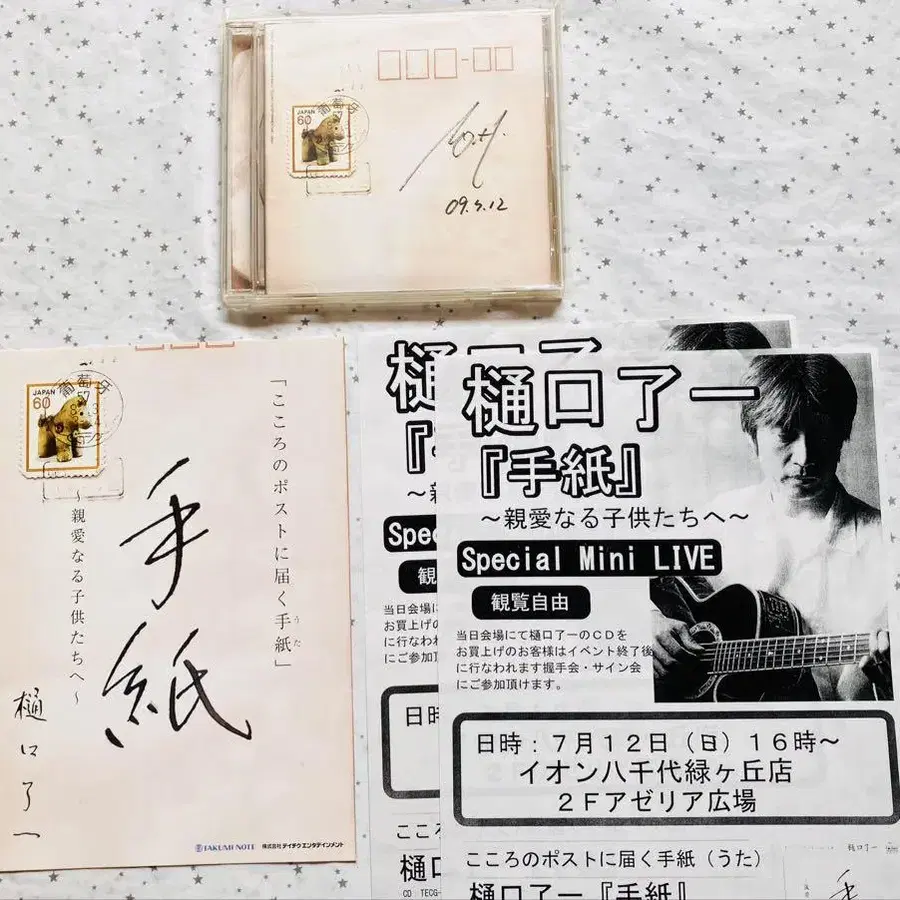 JAPAN
60
葡萄
09.7.12
JAPAN
60
葡萄
57
「こころのポストに届く手紙」
うた
手紙
~親愛なる子供たちへ~
樋口了一
TAKUMI NOTE 株式会社テイチクエンタテインメント
樋口了
『
~親
Spec
観
当日会場に
お買上げの
に行なわれ
にご参加
日時
ここ
樋口
CD TECG-
樋口了一
『手紙』
~親愛なる子供たちへ~
Special Mini LIVE
観覧自由
当日会場にて樋口了一のCDを
お買上げのお客様はイベント終了後
に行なわれます握手会・サイン会
にご参加頂けます。
日時:7月12日(日)16時~
イオン八千代緑ヶ丘店
2Fアゼリア広場
こころのポストに届く手紙(うた)
樋口了一『手紙』
樋口了一
手